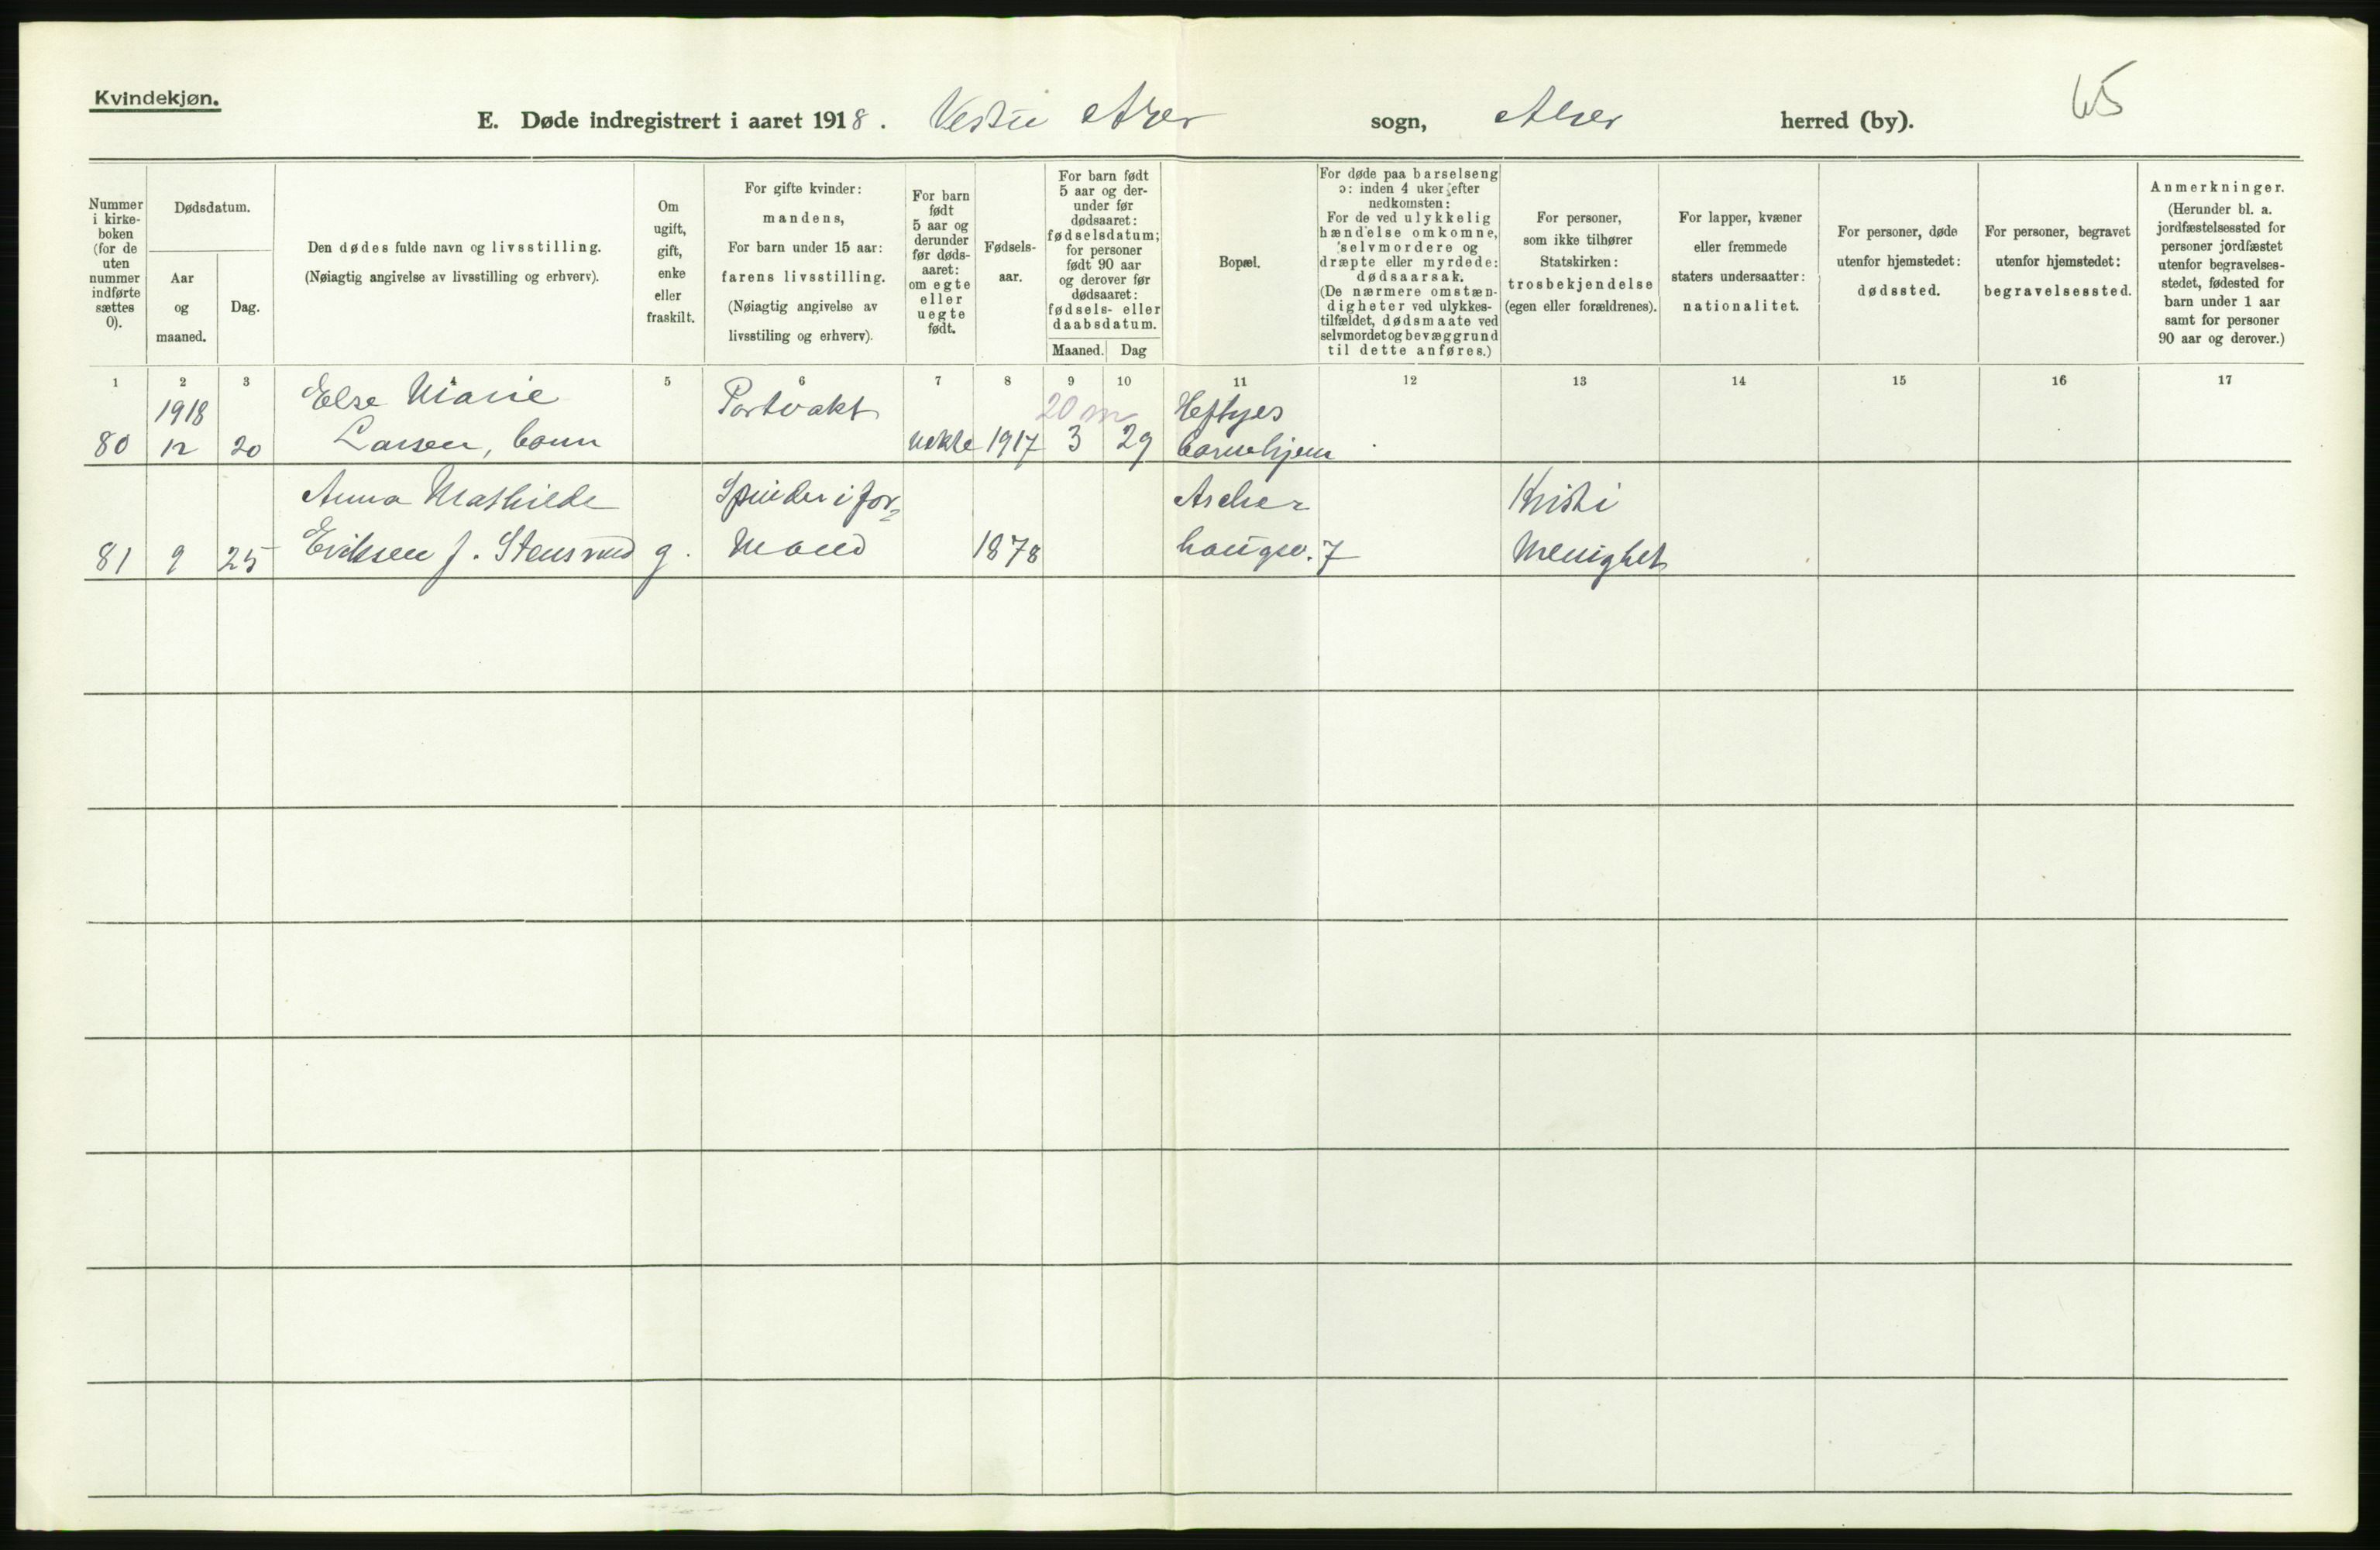 Kvindekjøn.
E. Døde indregistrert i aaret 1918. Vestre Aker sogn, Aker herred (by).
65
Nummer
i kirke-
boken
(for de
uten
nummer
indførte
sættes
0).
Dødsdatum.
Aar
og
maaned.
Dag.
Den dødes fulde navn og livsstilling.
(Nøiagtig angivelse av livsstilling og erhverv).
Om
ugift,
gift,
enke
eller
fraskilt.
For gifte kvinder:
mandens,
For barn under 15 aar:
farens livsstilling.
(Nøiagtig angivelse av
livsstiling og erhverv).
For barn
født
5 aar og
derunder
før døds-
aaret:
om egte
eller
uegte
født.
Fødsels-
aar.
For barn født
5 aar og der-
under før
dødsaaret:
fødselsdatum;
for personer
født 90 aar
og derover før
dødsaaret:
fødsels- eller
daabsdatum.
Maaned. Dag
Bopæl.
For døde paa barselseng
ɔ: inden 4 uker efter
nedkomsten:
For de ved ulykkelig
hændelse omkomne,
selvmordere og
dræpte eller myrdede:
dødsaarsak.
(De nærmere omstæn-
digheter ved ulykkes-
tilfældet, dødsmaate ved
selvmordet og bevæggrund
til dette anføres.)
For personer,
som ikke tilhører
Statskirken:
trosbekjendelse
(egen eller forældrenes).
For lapper, kvæner
eller fremmede
staters undersaatter:
nationalitet.
For personer, døde
utenfor hjemstedet:
dødssted.
For personer, begravet
utenfor hjemstedet:
begravelsessted.
Anmerkninger.
(Herunder bl. a.
jordfæstelsessted for
personer jordfæstet
utenfor begravelses-
stedet, fødested for
barn under 1 aar
samt for personer
90 aar og derover.)
1 2 3 4 5 6 7 8 9 10 11 12 13 14 15 16 17
1918 Else Marie Portvakt 20 m Heftyes
80 12 20 Larsen, barn uekte 1917 3 29 barnehjem
Anna Mathilde Spinderifor= Kristi
81 9 25 Eriksen f. Stensrud g. Mand 1878 haugsv. 7 Menighet